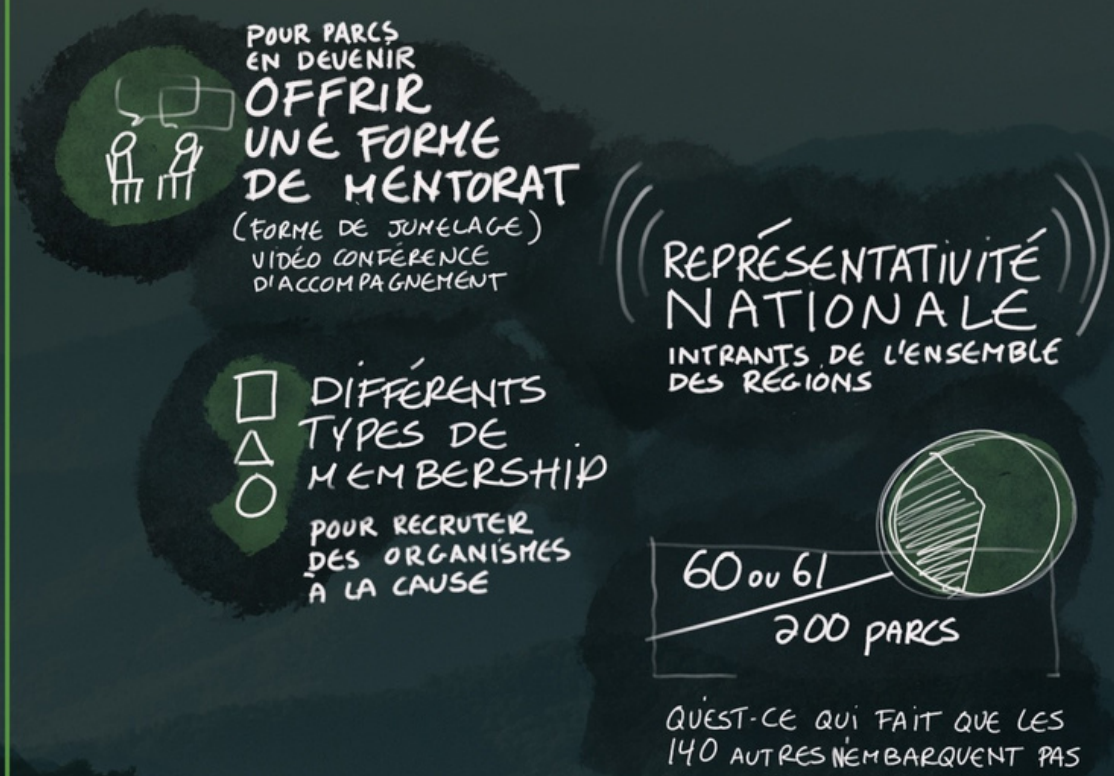 POUR PARCS
EN DEVENIR
OFFRIR
UNE FORME
DE MENTORAT
(FORME DE JUMELAGE)
VIDÉO CONFÉRENCE
D'ACCOMPAGNEMENT
DIFFÉRENTS
TYPES DE
MEMBERSHIP
POUR RECRUTER
DES ORGANISMES
À LA CAUSE
REPRÉSENTATIVITÉ
NATIONALE
INTRANTS DE L'ENSEMBLE
DES RÉGIONS
60 ou 61
200 PARCS
QU'EST-CE QUI FAIT QUE LES
140 AUTRES N'EMBARQUENT PAS